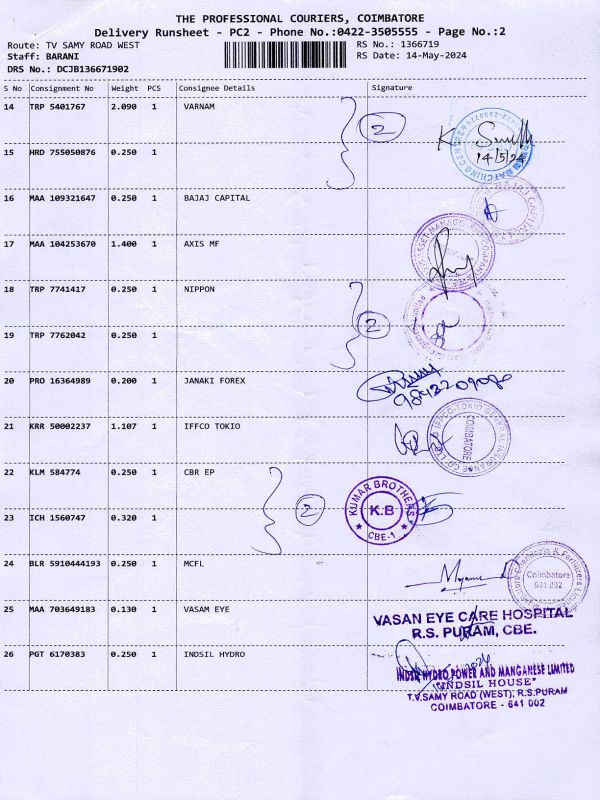 THE PROFESSIONAL COURIERS, COIMBATORE
Delivery Runsheet - PC2 - Phone No.:0422-3505555 - Page No.:2
Route: TV SAMY ROAD WEST
RS No.: 1366719
Staff: BARANI
RS Date: 14-May-2024
DRS No.: DCJB136671902
S No Consignment No Weight PCS Consignee Details Signature
14 TRP 5401767 2.090 1 VARNAM
2
14/5/24
15 HRD 755050876 0.250 1
16 MAA 109321647 0.250 1 BAJAJ CAPITAL
BAJAJ CAPITAL
17 MAA 104253670 1.400 1 AXIS MF
18 TRP 7741417 0.250 1 NIPPON
2
19 TRP 7762042 0.250 1
20 PRO 16364989 0.200 1 JANAKI FOREX
21 KRR 50002237 1.107 1 IFFCO TOKIO
IFFCO-TOKIO GENERAL INSURANCE CO. LTD
COIMBATORE
22 KLM 584774 0.250 1 CBR EP
2
KUMAR BROTHERS
K.B
CBE-1
23 ICH 1560747 0.320 1
24 BLR 5910444193 0.250 1 MCFL
Chemicals & Fertilizers
Coimbatore
641 002
25 MAA 703649183 0.130 1 VASAM EYE
VASAN EYE CARE HOSPITAL
R.S. PURAM, CBE.
26 PGT 6170383 0.250 1 INDSIL HYDRO
INDSIL HYDRO POWER AND MANGANESE LIMITED
"INDSIL HOUSE"
T.V.SAMY ROAD (WEST), R.S.PURAM
COIMBATORE - 641 002